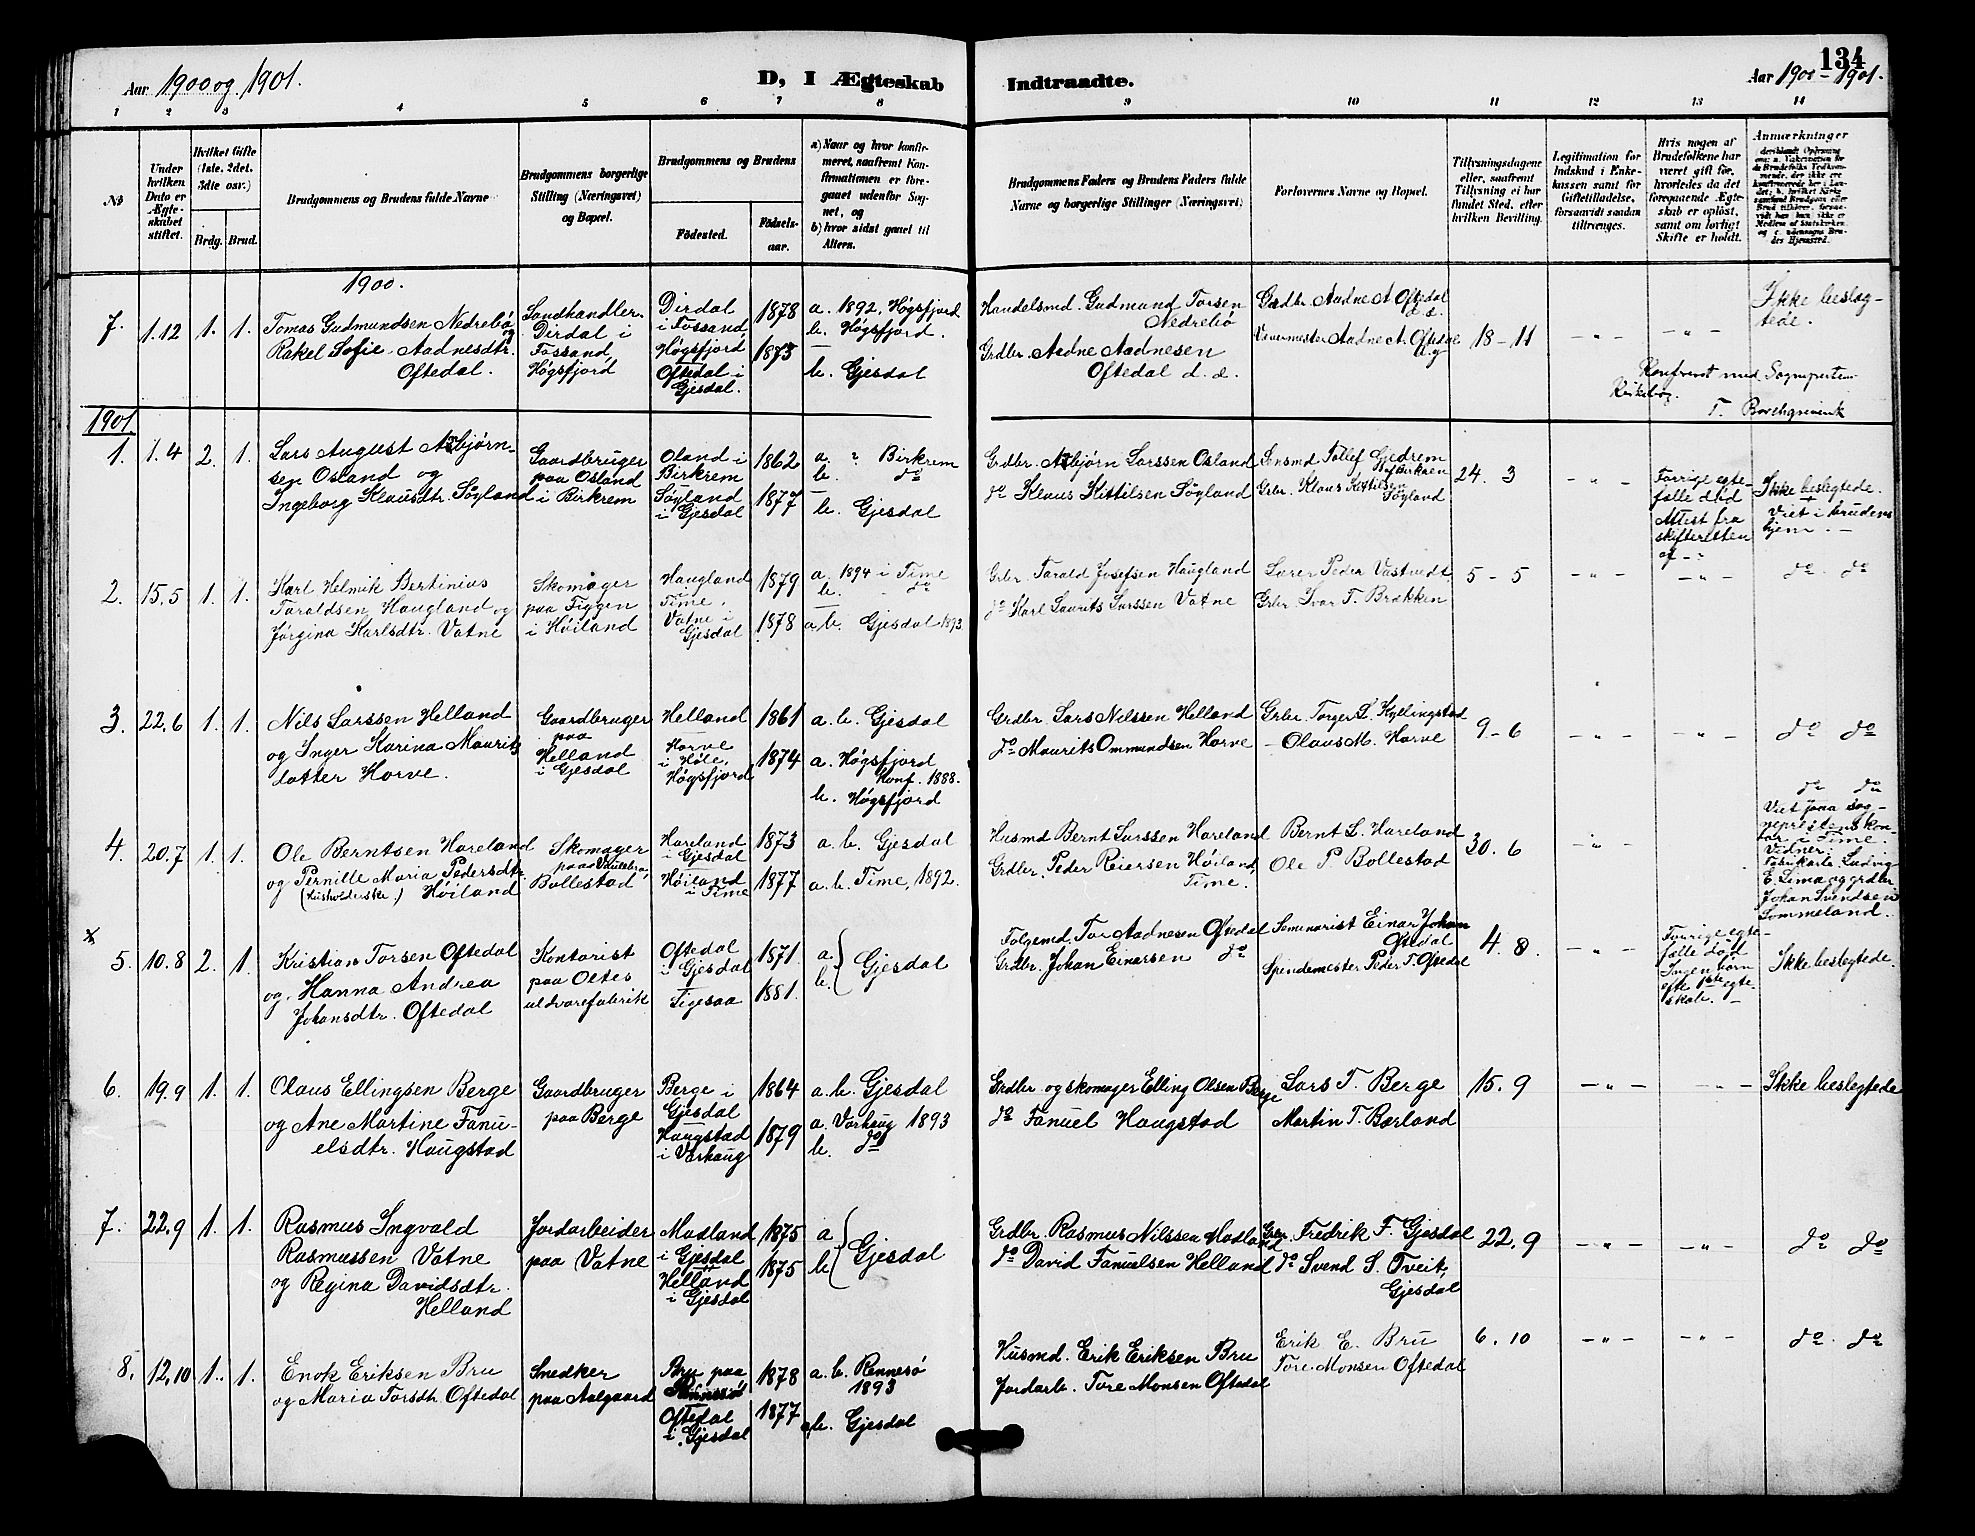 134
Aar 1900 og 1901.
D, I Ægteskab
Indtraadte.
Aar 1900 - 1901.
1 2 3 4 5 6 7 8 9 10 11 12 13 14
No
Under hvilken Dato er Ægteskabet stiftet.
Hvilket Gifte (1ste, 2det, 3die osv.)
Brdg. Brud.
Brudgommens og Brudens fulde Navne
Brudgommens borgerlige Stilling (Næringsvei) og Bopæl.
Brudgommens og Brudens
Fødested.
Fødselsaar.
a) Naar og hvor konfirmeret, saafremt Konfirmationen er foregaaet udenfor Sognet, og
b) hvor sidst gaaet til Alters.
Brudgommens Faders og Brudens Faders fulde Navne og borgerlige Stillinger (Næringsvei)
Forlovernes Navne og Bopæl.
Tillysningsdagene eller, saafremt Tillysning ei har fundet Sted, efter hvilken Bevilling.
Legitimation for Indskud i Enkekassen samt for Giftetilladelse, forsaavidt saadan tiltrænges.
Hvis nogen af Brudefolkene har været gift før, hvorledes da det foregaaende Ægteskab er opløst, samt om lovligt Skifte er holdt.
Anmærkninger
1900.
7. 1.12 1. 1.
Tomas Gudmundsen Nedrebø og
Rakel Sofie Aadnesdtr.
Oftedal.
Sandhandler.
Dirdal i
Fossand
Høgsfjord
Dirdal
i Fossand
Høgsfjord
Oftedal i
Gjesdal.
1878
1873
a. 1892, Høgsfjord
b. Høgsfjord.
b. Gjesdal
Handelsmd Gudmund Torsen
Nedrebø
Grdbr. Aadne Aadnesen
Oftedal d. e.
Grdbr Aadne A Oftedal
d. e.
Vævermester Aadne A. Oftedal
d.y
18 - 11
- " -
- " -
Ikke beslægtede.
Konfereret med Sogneprestens
Kirkebog.
T. Borchgrevink
1901.
1. 1.4 2. 1.
Lars August Asbjørnsen Osland og
Ingeborg Klausdtr. Søyland
Gaardbruger
paa Osland
i Birkrem
Oland i
Birkrem
Søyland
i Gjesdal
1862
1877
a. " Birkrem
b. do
b. Gjesdal
Grdbr. Asbjørn Larssen Osland
do Klaus Kittilsen Søyland
Lensmd Tollef Gjedrem
af Birkrem
Grbr. Klaus Kittilsen
Søyland.
24. 3
- " -
Forrige egtefælle død
Attest fra
skifteretten
af - "
Ikke beslegtede.
Viet i brudens
hjem. -
2. 15.5 1. 1.
Karl Helmik Bertinius
Taraldsen Haugland og
Jørgina Karlsdtr. Vatne
Skomager
paa Figgen
i Høiland
Haugland
Time.
Vatne i
Gjesdal
1879
1878
a. 1894 i Time
b. do
a b. Gjesdal 1893.
Grbr. Tarald Josefsen Haugland
do Karl Laurits Larssen Vatne
Lærer Peder Vastvedt
Grbr Ivar T. Brekken
5 - 5
- " -
- " -
do do
3. 22.6 1. 1.
Nils Larssen Helland
og Inger Karina Mauritsdatter Horve.
Gaardbruger
paa
Helland
i Gjesdal
Helland
Horve
i Høle,
Høgsfjord
1861
1874
a. b. Gjesdal
a. Høgsfjord
Konf. 1888.
b. Høgsfjord
Grdbr. Lars Nilssen Helland
do Maurits Ommundsen Horve
Grbr. Torger L. Kyllingstad
- Olaus M. Horve
9 - 6
- " -
- " -
do do
4. 20.7 1. 1.
Ole Berntsen Hareland
og Pernille Maria Pedersdtr.
(husholderske.) Høiland
Skomager
paa
Bollestad
Hareland
i Gjesdal
Høiland
i Time
1873
1877
a. b. Gjesdal
a. b. Time, 1892.
Husmd Bernt Larssen Hareland
Grdbr. Peder Reiersen Høiland,
Time.
Bernt L. Hareland
Ole P Bollestad
30. 6
- " -
do do
Viet paa sogneprestens kontor i Time.
Vidner:
Fabrikeier Ludvig
E. Lima og grdbr
Johan Svendsen
Sømmeland.
x
5. 10.8 2. 1.
Kristian Torsen Oftedal
og Hanna Andrea
Johansdtr. Oftedal
Kontorist
paa Oltes
uldvarefabrik
Oftedal
i Gjesdal
Figesaa
1871.
1881.
a.
b. Gjesdal
Følgemd. Tor Aadnesen Oftedal
Grdbr. Johan Einersen do
Seminarist Einar Johan
Oftedal
Spindemester Peder T. Oftedal
4. 8.
- " -
Forrige egtefælle død
Ingen børn
efte 1ste egteskab. -
Ikke beslegtede.
6. 19.9 1. 1.
Olaus Ellingsen Berge
og Ane Martine Fanuelsdtr. Haugstad
Gaardbruger
paa Berge
Berge i
Gjesdal
Haugstad
i Varhaug
1864
1879
a. b. Gjesdal
a. Varhaug 1893
b. do
Grdbr. og skomager Elling Olsen Berge
do Fanuel Haugstad
Lars T. Berge
Martin T. Børland
15. 9
- " -
- " -
Ikke beslegtede
7. 22.9 1. 1.
Rasmus Ingvald
Rasmussen Vatne
og Regina Davidsdtr.
Helland
Jordarbeider
paa Vatne
Madland
i Gjesdal
Helland
i Gjesdal
1875
1875
a
b. Gjesdal
Grdbr. Rasmus Nilssen Madland
do David Fanuelsen Helland
Grbr. Fredrik F. Gjesdal
do Svend S. Tveit,
Gjesdal
22. 9
- " -
- " -
do do
8. 12.10 1. 1.
Enok Eriksen Bru
og Maria Torsdtr Oftedal
Snedker
paa Aalgaard
Bru paa
Rennesø
Oftedal
i. Gjesdal
1878
1877
a. b. Rennesø
1893
a. b. Gjesdal
Husmd. Erik Eriksen Bru
Jordarb. Tore Monsen Oftedal
Erik E. Bru
Tore Monsen Oftedal
6. 10
- " -
- " -
do do